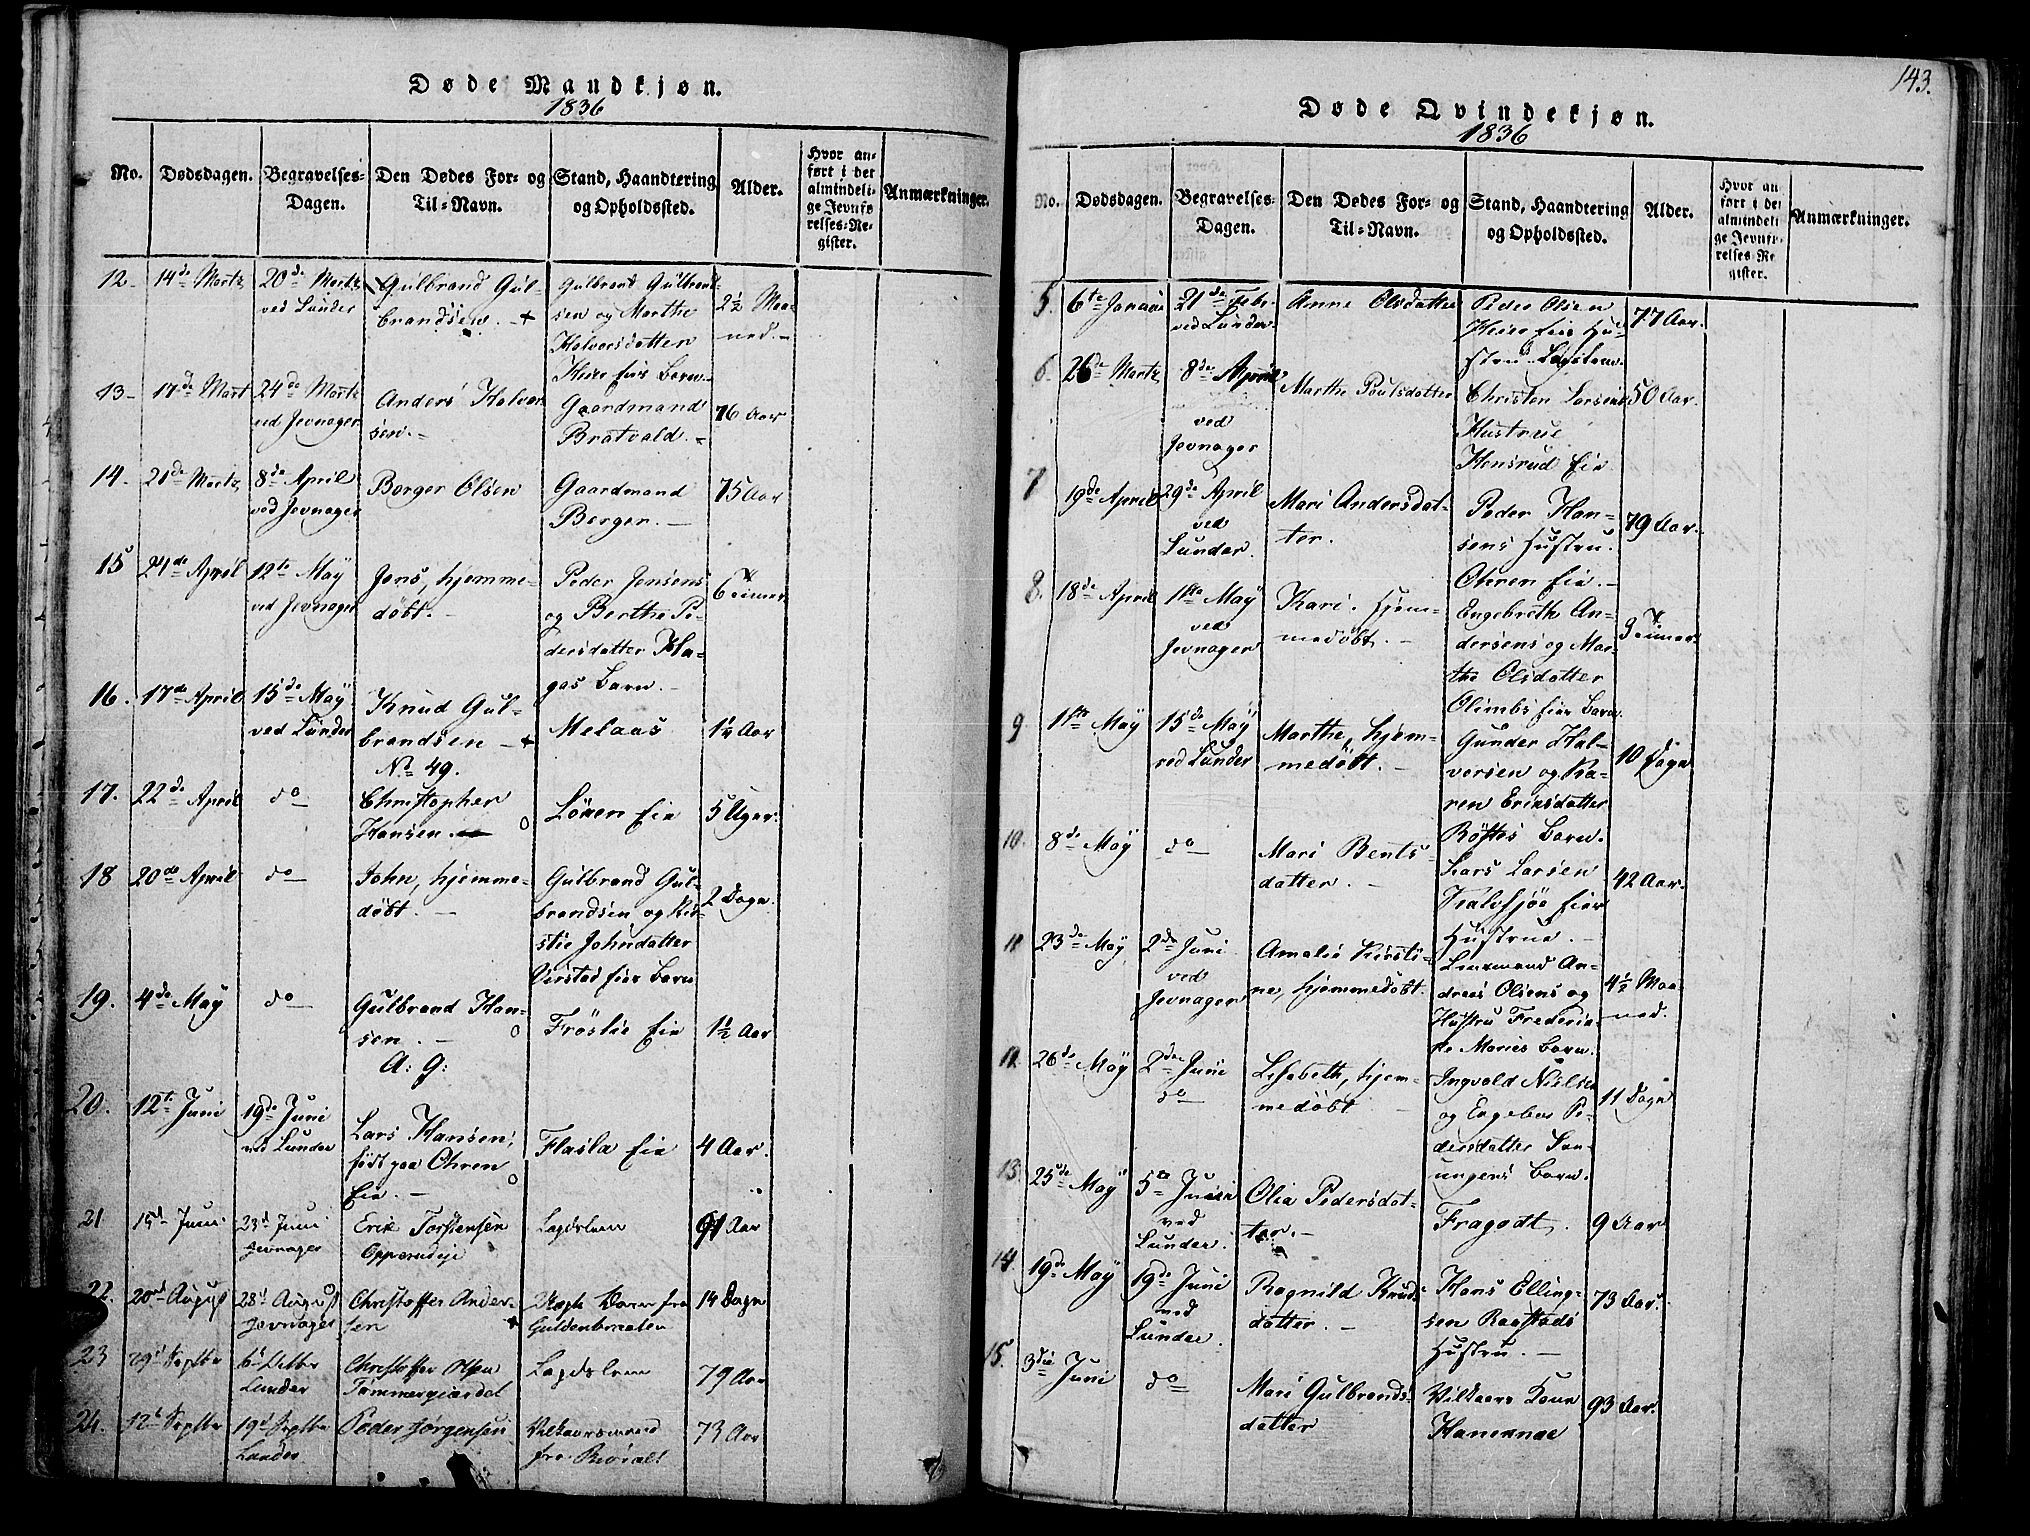 Døde Mandkjøn.
1836
No.
Dødsdagen.
Begravelses-
Dagen.
Den Dødes For- og
Til-Navn.
Stand, Haandtering
og Opholdssted.
Alder.
Hvor an-
ført i det
almindeli-
ge Jevnfø
relses-Re-
gister.
Anmærkninger.
12-
14de Martz
20de Martz
ved Lunder
Gulbrand Gul-
brandsen. - +
Gulbrand Gulbrand-
sen og Marthe
Halvorsdatter
Eier Barn.
2½ Maa-
ned.-
13-
17de Mart
24de Martz
ved Jevnager
Anders Halvor
sen.-
Gaardmand
Bratvald.-
76 Aar
14.
21de Martz
8de April
ved Jevnager
Borger Olsen
Gaardmand
Berger.-
75 Aar
15
24de April
12te May
ved Jevnager
Jens, hjemme-
døbt.-
Peder Jensens
og Berthe Pe-
dersdatter Ha-
gas Barn.-
6 Timer
16.
17de April
15de May
ved Lunder
Knud Gul-
brandsen - +
No 49.
Melaas
1¼ Aar
17.
22de April
do
Christopher
Hansen. o
Løken Eie
5 Uger.
18
20de April
do
John, hjemme-
døbt.-
Gulbrand Gul-
brandsen og Kir-
stie Johnsdatter
Eier Barn
2 Dage
19.
4de May
do
Gulbrand Han-
sen.- o
A: G:
Frøslie Eie
1½ Aar
20.
12te Juni
19de Juni
ved Lunder
Lars Hansen,
født paa Ohren
Eie.- o
Flasla Eie
4 Aar.
21
15d Juni
23d Juni
Jevnager
Erik Torstensen
Lagdslem
91 Aar
22.
20nd August
28d August
Jevnager
Christoffer Ander-
sen +
Barn fra
14 Dage
23
29d Septbr
Lunder
Christoffer Olsen
Lagdslem
79 Aar
24.
12d Septbr
19d Septbr
Lunder
Peder Jørgensen
Vilkaarsmand
fra
73 Aar
143.
Døde Qvindekjøn.
1836
No.
Dødsdagen.
Begravelses-
Dagen.
Den Dødes For- og
Til-Navn.
Stand, Haandtering
og Opholdssted.
Alder.
Hvor an
ført i det
almindeli
ge Jevnfø-
relses-Re
gister.
Anmærkninger.
5.
6te Januar
21de Febr.
ved Lunder.
Anne Olsdatter
Peder Olsen
Eie Hu-
stru. Lagslem
77 Aar.
6.
26de Martz
8de April
ved
Jevnager
Marthe Poulsdatter
Christen Larsens
Hustrue
Hensrud Eie
50 Aar.
7
19de April
29de April
ved
Lunder.
Mari Andersdat-
ter.
Peder Han-
sens Hustru.
Ohren Eie.-
79 Aar.
8.
18de April
1ste May
ved
Jevnager
Kari. hjem-
medøbt.-
Engebreth An-
dersens og Mar-
the Olsdatter
Olimbs Eier Barn
9 Timer
9
1ste May
15de May
ved Lunder
Marthe, hjem-
medøbt.-
Gunder Hal-
vorsen og Ka-
ren Eriksdatter
Barn.
10 Dage
10.
8de May
do
Mari Bents-
datter.-
Lars Larsen
Kalvsjøe Eier
Hustrue.-
42 Aar.
11
23de May
2de Juni
ved
Jevnager
Amalie Kirsti-
ne, hjemmedøbt.
Lensmand An-
dreas Olsens og
Hustru Frederik-
ke Maries Barn.
4½ Maa-
ned.
12
26de May
2den Juni
do
Lisabeth, hjem-
medøbt
Ingvald Nielsen
og Engebor Pe-
dersdatter
Barn.
11 Dage
13.
25de May
5te Juni
ved
Lunder.
Olia Pedersdat-
ter.-
Fragodt.
9 Aar
14.
19de May
19de Juni
ved
Lunder.
Ragnild Knuds
datter.-
Hans Elling-
sen Raastads
Hustru.-
73 Aar.
15.
3die Juni
do
Mari Gulbrands-
datter
Vilkaars Kone
93 Aar.